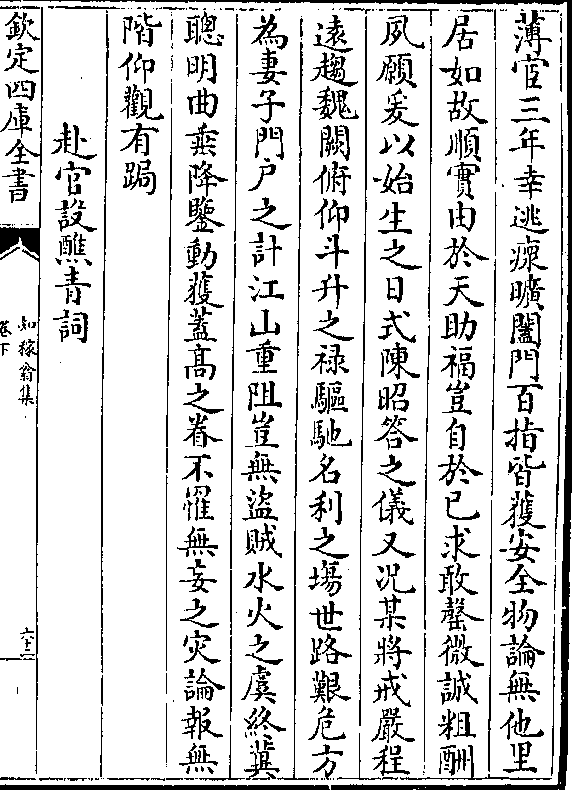 薄宦三年幸逃瘝曠闔門百指皆獲安全物論無他里
居如故順實由於天助福豈自於已求敢罄微誠粗酬
夙願爰以始生之日式陳昭答之儀又况某將戒嚴程
遠趨魏闕俯仰斗升之禄驅馳名利之塲世路艱危方
為妻子門户之計江山重阻豈無盜賊水火之虞終冀
聰明曲垂降鑒動獲蓋髙之眷不罹無妄之灾論報無
階仰觀有跼
赴官設醮青詞
欽定四庫全書
知稼翁集
卷下
六十三